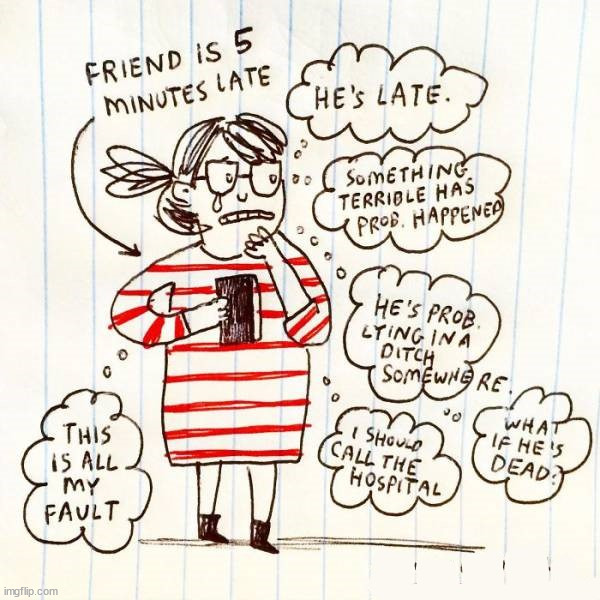 FRIEND IS 5
MINUTES LATE
HE'S LATE.
SOMETHING
TERRIBLE HAS
PROB. HAPPENED
HE'S PROB.
LYING IN A
DITCH
SOMEWHERE
WHAT
IF HE'S
DEAD?
I SHOULD
CALL THE
HOSPITAL
THIS
IS ALL
MY
FAULT
imgflip.com